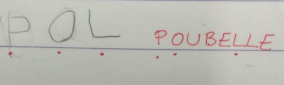 POL POUBELLE